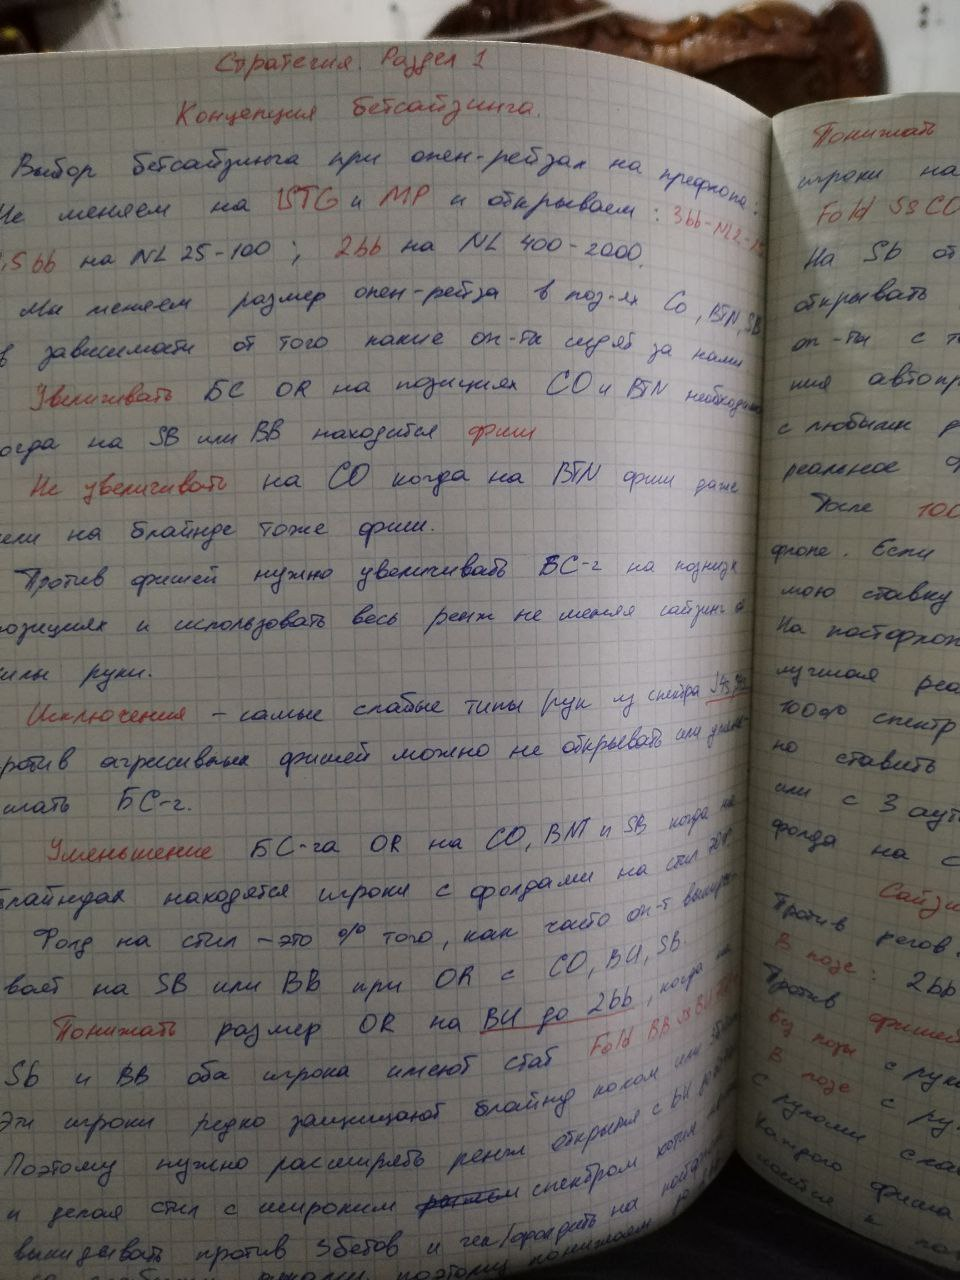 Стратегия. Раздел 1
Концепция бетсайзинга.
Выбор бетсайзинга при опен-рейзах на префлопе:
Не меняем на UTG и MP и открываем: 3bb-NL2-
,5bb на NL 25-100; 2bb на NL 400-2000.
Мы меняем размер опен-рейза в поз-ях Co, BTN, SB
в зависимости от того какие оп-ты сидят за нами
Увеличивать БС OR на позициях CO и BTN необходимо
огда на SB или BB находится фиш
Не увеличивать на CO когда на BTN фиш даже
ели на блайнде тоже фиш.
Против фишей нужно увеличивать БС-г на поздних
позициях и использовать весь ренж не меняя сайзинг от
силы руки.
Исключения - самые слабые типы рук из спектра
ротив агрисивных фишей можно не открывать или
шать БС-г.
Уменьшение БС-га OR на CO, BNT и SB когда на
блайндах находятся игроки с фолдами на стил 70%
Фолд на стил - это % того, как часто оп-т выкиды-
вает на SB или BB при OR с CO, BU, SB.
Понижать размер OR на BU до 2bb, когда на
Sb и BB оба игрока имеют стат Fold BB vs BU
Эти игроки редко защищают блайнд колом или
Поэтому нужно расширять ренж открытия с BU
и делая стил с широким спектром хотим
выкидывать против 3бетов и чек/фолдить на
поэтому понижаем
Понижать
игроки на
Fold SB CO
На Sb от
открывать
оп-ты с
ния автопр
с любыми р
реальное
После 100
флопе. Если
мою ставку
На постфлоп
лучшая реа
100% спектр
но ставить
или с 3 аут
фолда на с
Сайзи
Против регов.
В позе: 2bb
Против фишей
Без позы с рук
В позе с ру
с руками сла
Каждого фиша